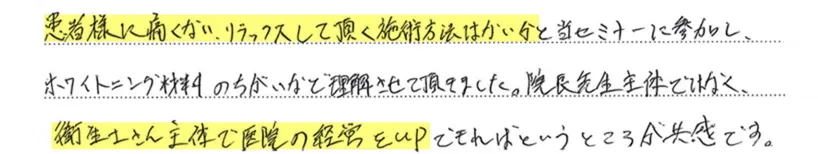 患者様に痛くない、リラックスして頂く施術方法はないかと当セミナーに参加し、
ホワイトニング材料のちがいなど理解させて頂きました。院長先生主体ではなく、
衛生士さん主体で医院の経営をupできればというところが共感です。